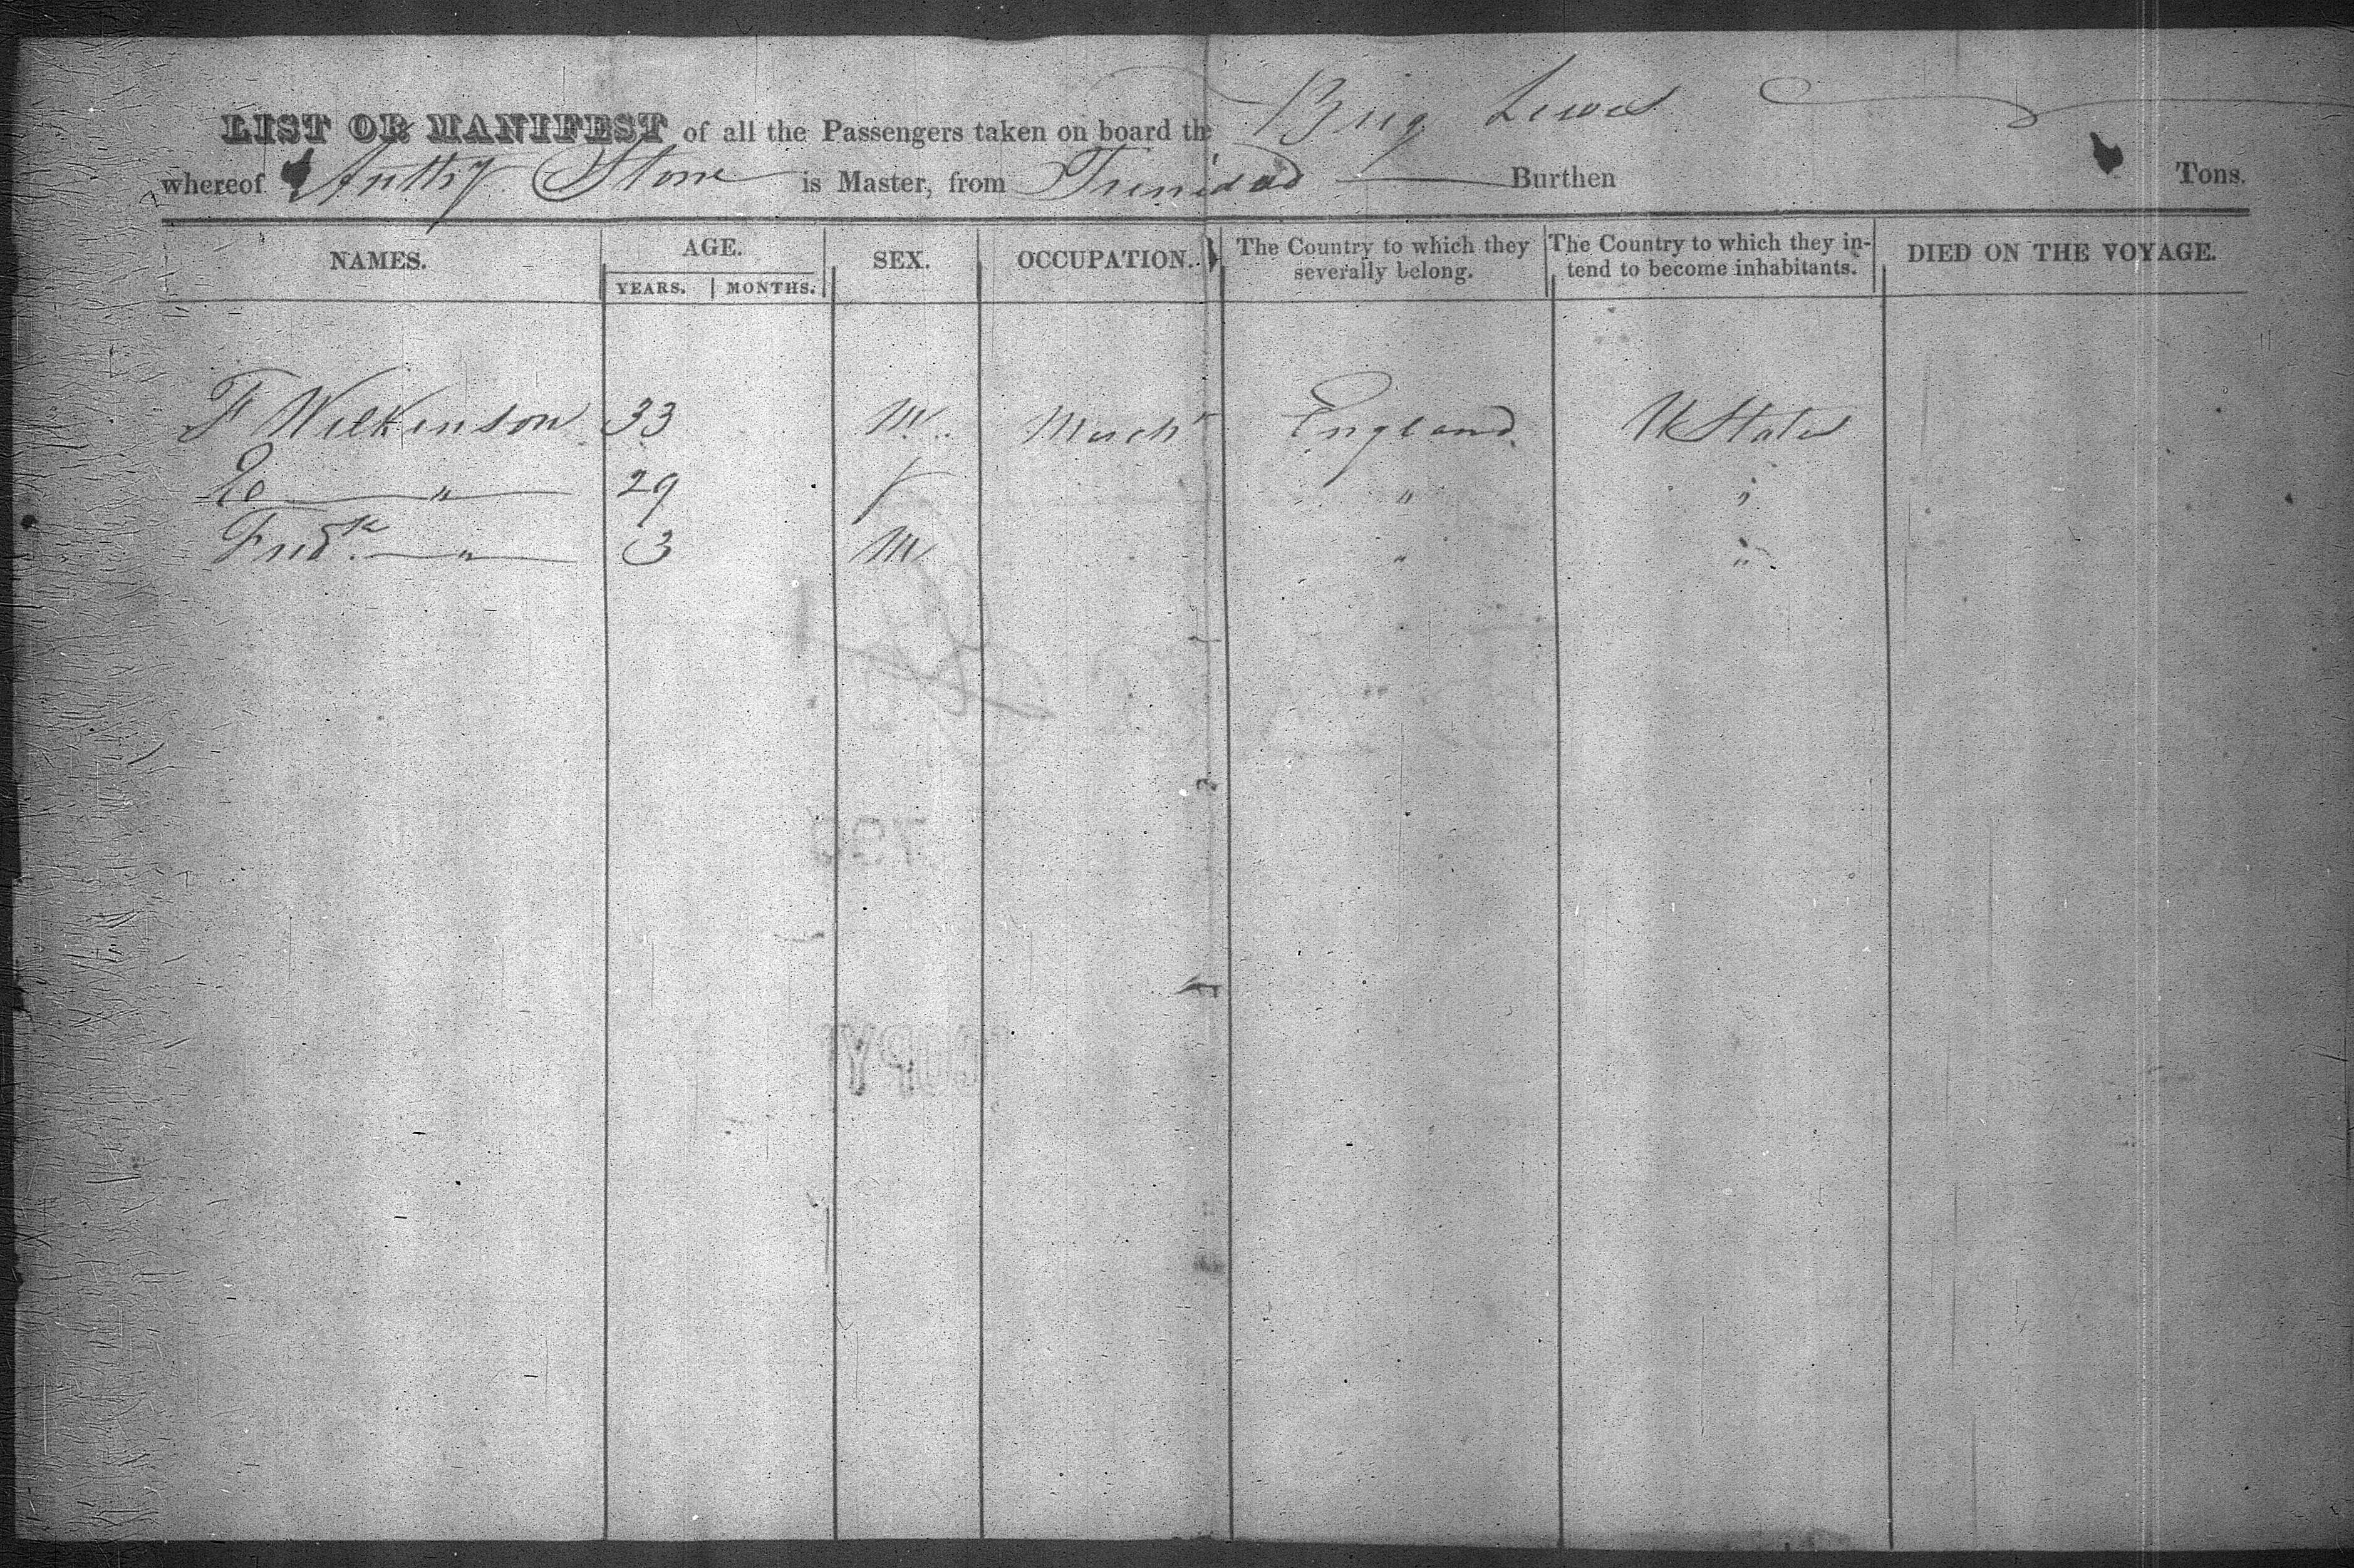 LIST OR MANIFEST of all the Passengers taken on board the Brig
whereof Anthy Stone is Master, from Trinidad Burthen Tons.
NAMES. AGE. SEX. OCCUPATION. The Country to which they severally belong. The Country to which they in-tend to become inhabitants. DIED ON THE VOYAGE.
YEARS. MONTHS.
F Wilkinson 33 M. Mercht England U States
" 29 f " "
Fredk. " 3 M " "
COPY